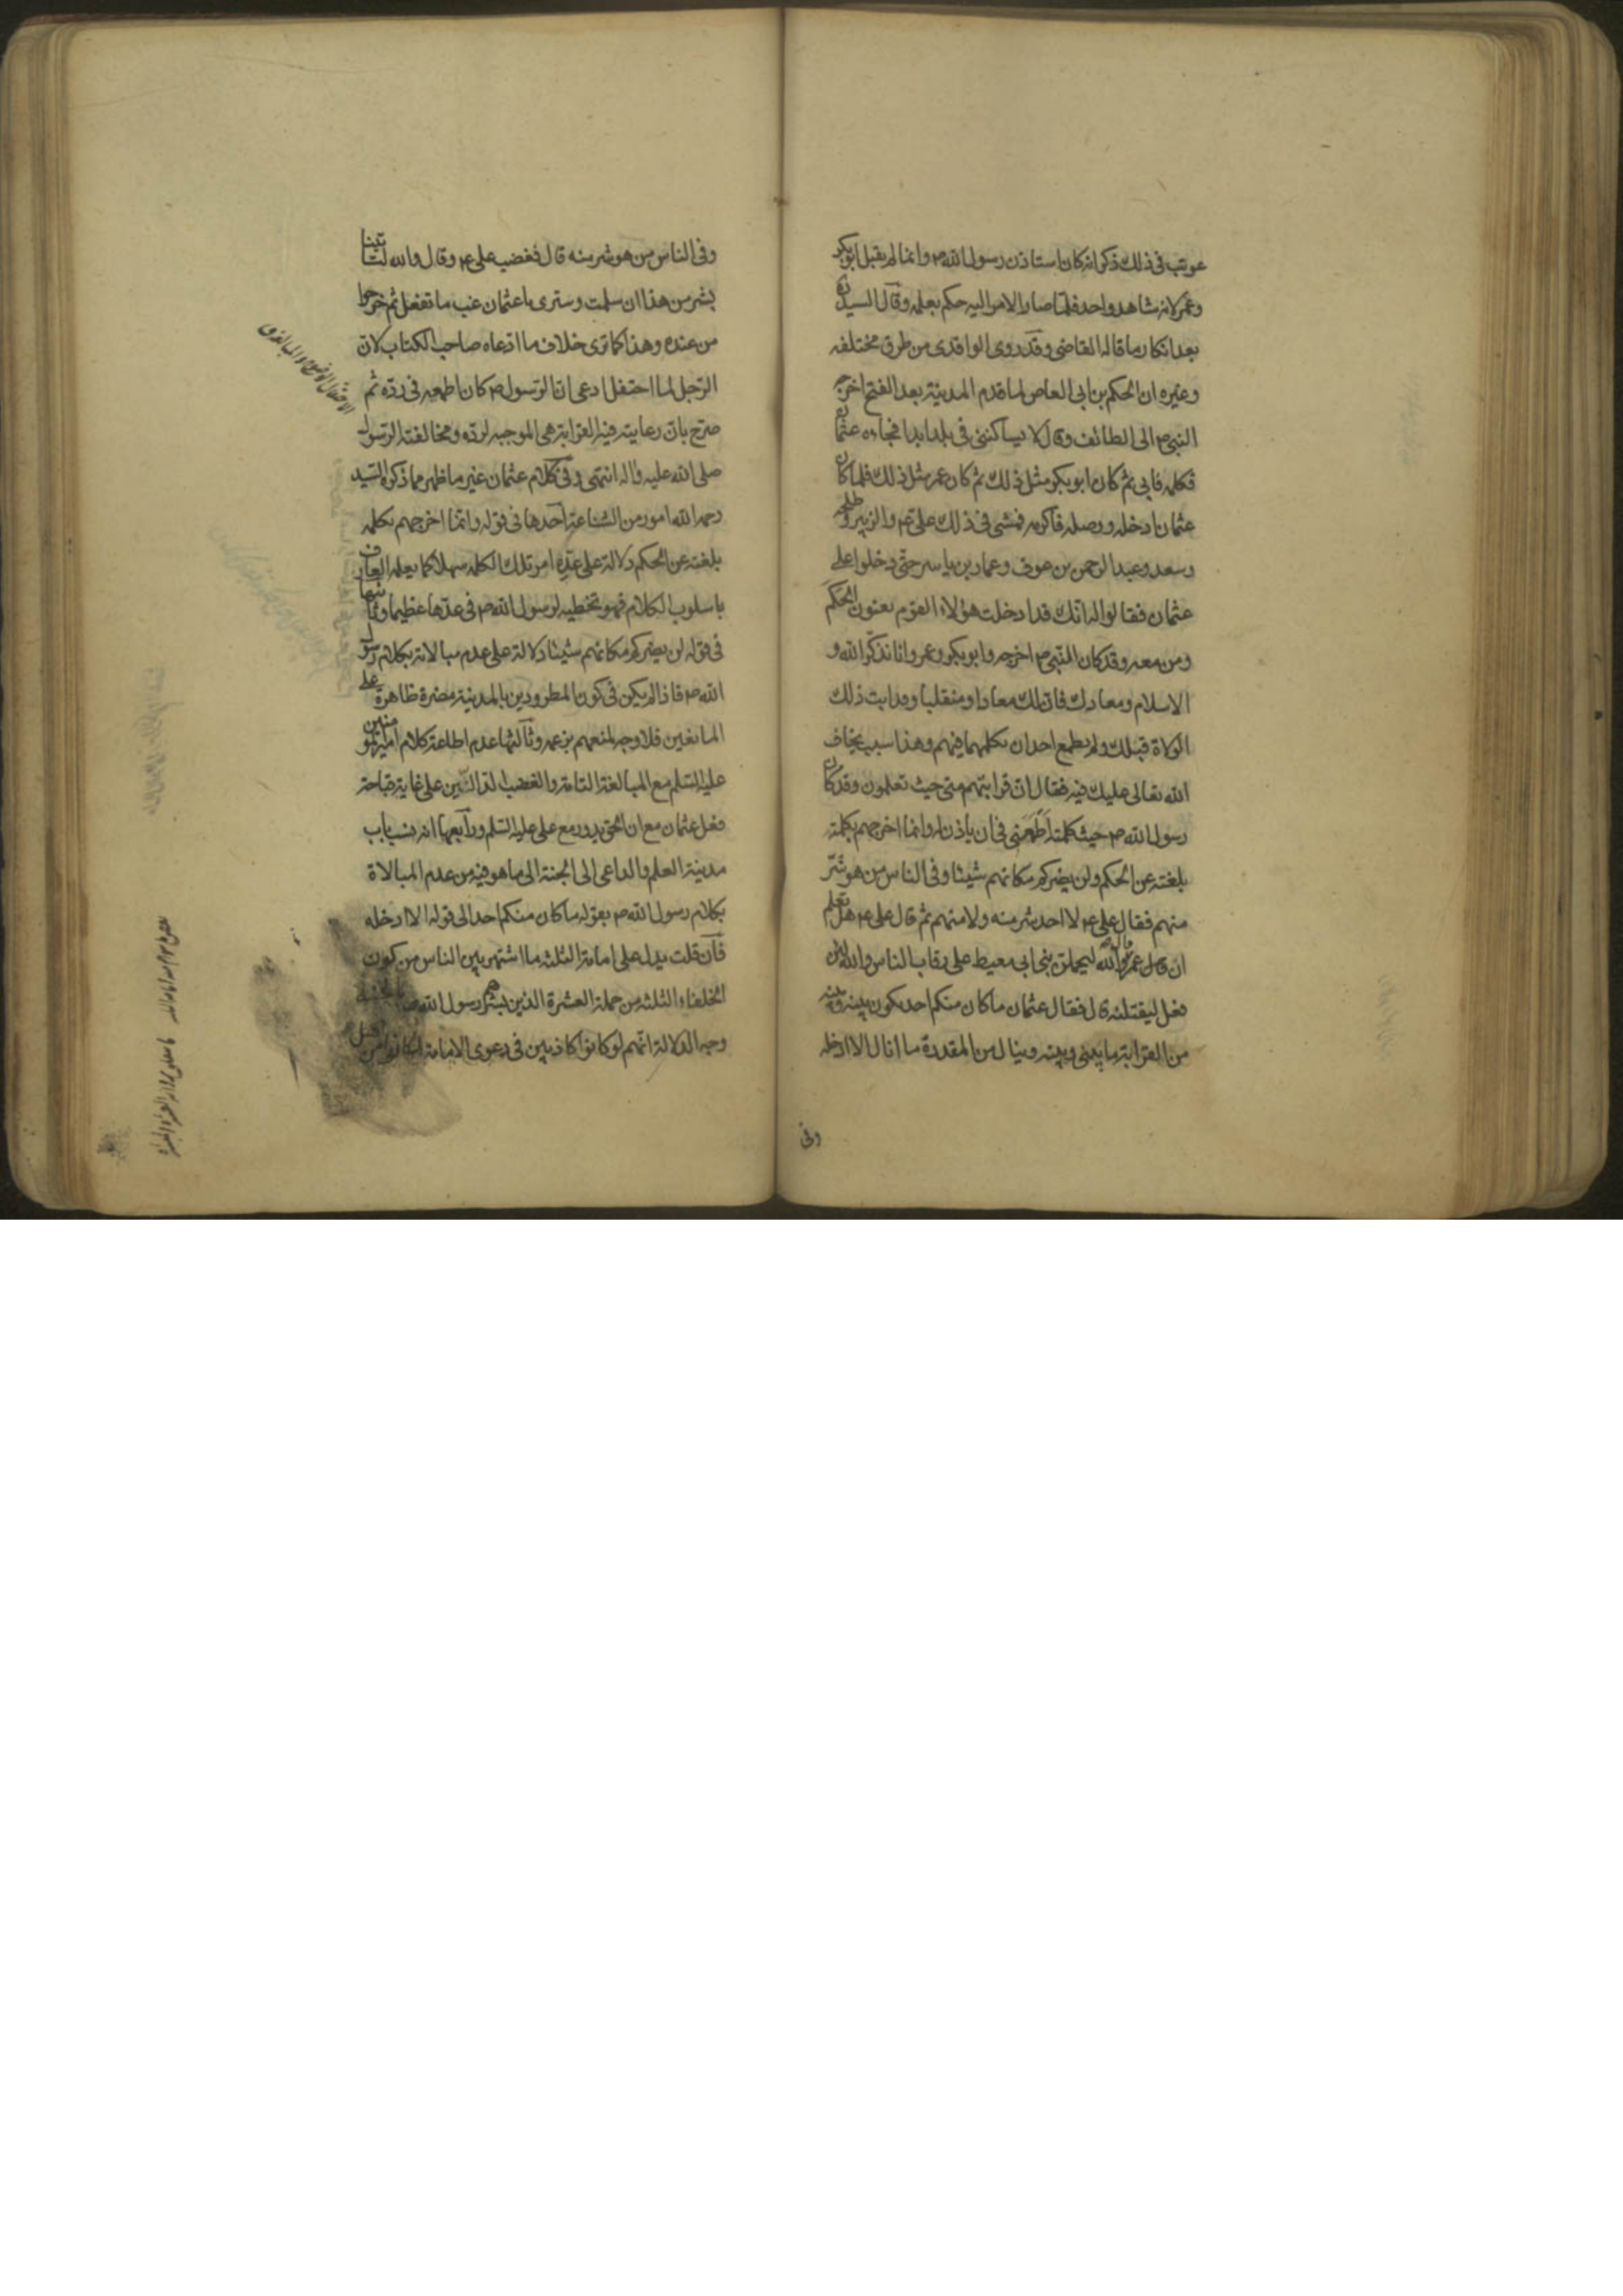 عوتب فى ذلك ذكر انه كان استاذن رسول الله ص وانما لم يقبل ابوبكر
وعمر لانه شاهد واحد فلما صار الامر اليه حكم بعلمه وقال السيد
بعد انكار ما قاله القاضى وقد روى الواقدى من طرق مختلفه
وغيره ان الحكم بن ابى العاص لما قدم المدينة بعد الفتح اخرجه
النبى ص الى الطائف وقال لا يساكننى فى بلد ابدا فجاءه عثمان
فكلمه فابى ثم كان ابوبكر مثل ذلك ثم كان عمر مثل ذلك فلما كان
عثمان ادخله ووصله فاكرمه فمشى فى ذلك على ع والزبير وطلحه
وسعد وعبد الرحمن بن عوف وعمار بن ياسر حتى دخلوا على
عثمان فقالوا له انك قد ادخلت هؤلاء القوم يعنون الحكم
ومن معه وقد كان النبى ص اخرجه وابوبكر وعمر وانا نذكر الله و
الاسلام ومعادك فان لك معادا ومنقلبا وقد ابت ذلك
الولاة قبلك ولم يطمع احد ان يكلمهما فيهم وهذا سبب يخاف
الله تعالى عليك فيه فقال ان قرابتهم منى حيث تعلمون وقد كان
رسول الله ص حيث كلمته اطمعنى فى ان ياذن له وانما اخرجهم بكلمته
بلغته عن الحكم ولن يضركم مكانهم شيئا وفى الناس من هو شر
منهم فقال على ع لا احد شر منه ولا منهم ثم قال على ع هل تعلم
ان عمر قال والله ليحملن بنى ابى معيط على رقاب الناس والله لئن
فعل ليقتلنه قال فقال عثمان ما كان منكم احد يكون بينه وبينه
من القرابة ما بينى وبينه وينال من المقدرة ما انال الا ادخله
وفى
وفى الناس من هو شر منه قال فغضب على ع وقال والله لتاتينا
بشر من هذا ان سلمت وسترى يا عثمان غب ما تفعل ثم خرجوا
من عنده وهذا كما ترى خلاف ما ادعاه صاحب الكتاب لان
الرجل لما احتفل ادعى ان الرسول ص كان اطمعه فى رده ثم
صرح بان رعايته فيه القرابة هى الموجبه لرده ومخالفة الرسول
صلى الله عليه واله انتهى وفى كلام عثمان غير ما ظهر مما ذكره السيد
رحمه الله امور من الشناعة احدها فى قوله وانما اخرجهم بكلمه
بلغته عن الحكم دلالة على عده امر تلك الكلمه سهلا كما يعلمه العارف
باسلوب الكلام فهو تخطيه لرسول الله ص فى عدها عظيما وثانيها
فى قوله لن يضركم مكانهم شيئا دلالة على عدم مبالاته بكلام رسول
الله ص فاذا لم يكن فى كون المطرودين بالمدينة مضرة ظاهرة على
المانعين فلا وجه لمنعهم بزعمه وثالثها عدم اطاعة كلام امير المؤمنين
عليه السلم مع المبالغة التامة والغضب الدالين على غاية قباحة
فعل عثمان مع ان الحق يدور مع على عليه السلم ورابعها انه نسب باب
مدينة العلم والداعى الى الجنة الى ما هو فيه من عدم المبالاة
بكلام رسول الله ص بقوله ما كان منكم احد الى قوله الا ادخله
فان قلت يدل على امامة الثلثه ما اشتهر بين الناس من كون
الخلفاء الثلثه من جملة العشرة الذين بشرهم رسول الله ص بالجنة
وجه الدلالة انهم لو كانوا كاذبين فى دعوى الامامة لكانوا من اهل